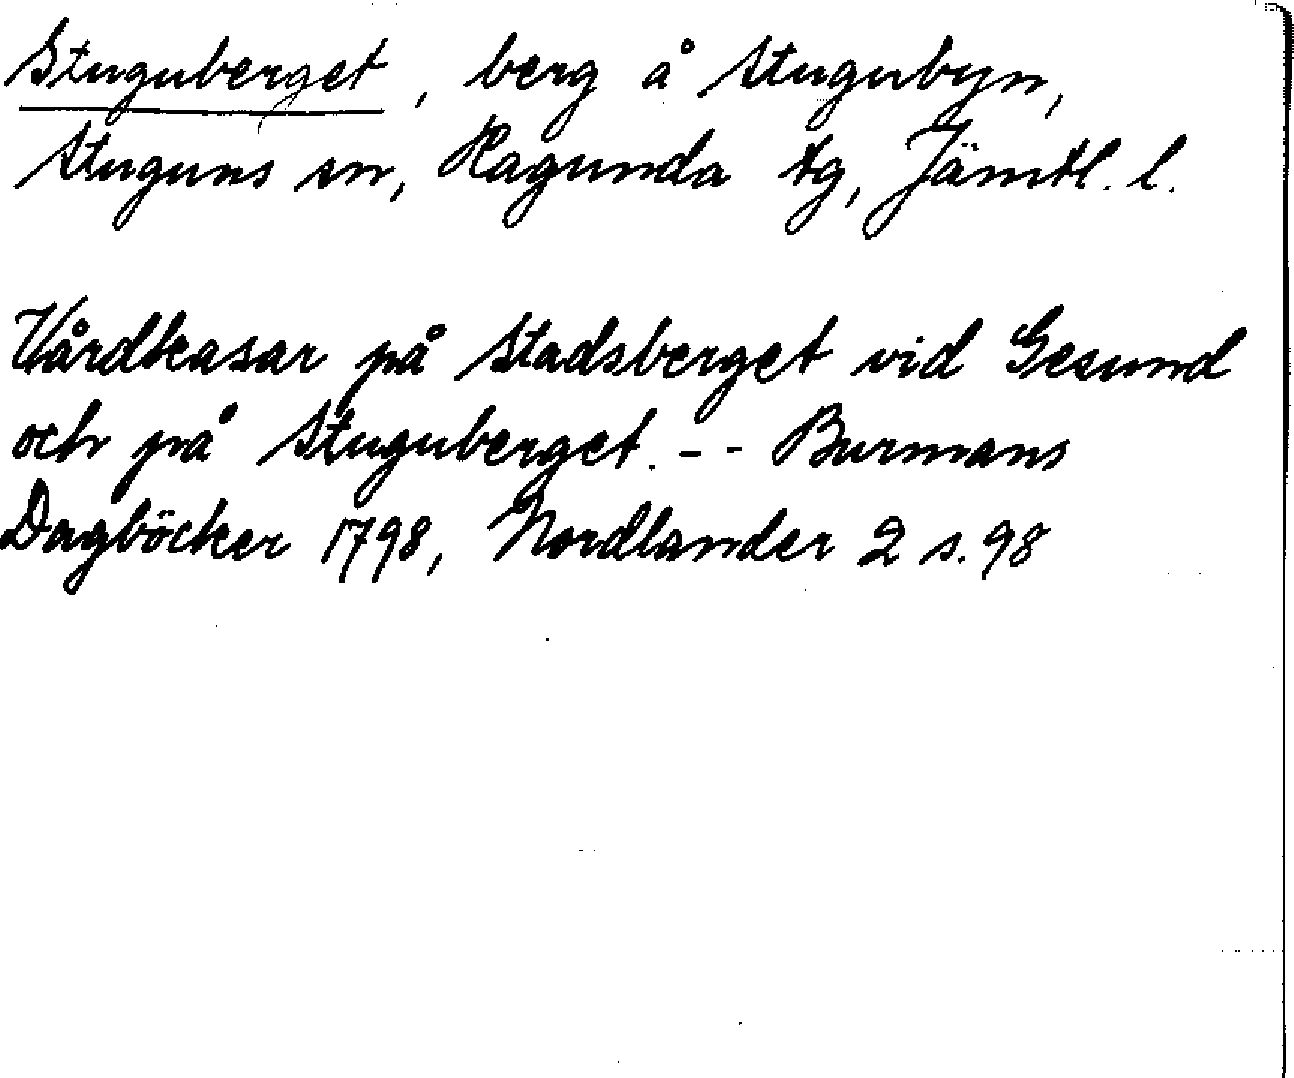 Stuguberget, berg å Stugubyn,
Stuguns sn, Ragunda tg, Jämtl. l.
Vårdkasar på Stadsberget vid Gesund
och på Stuguberget. - - Burmans
Dagböcker 1798, Nordlander 2 s. 98